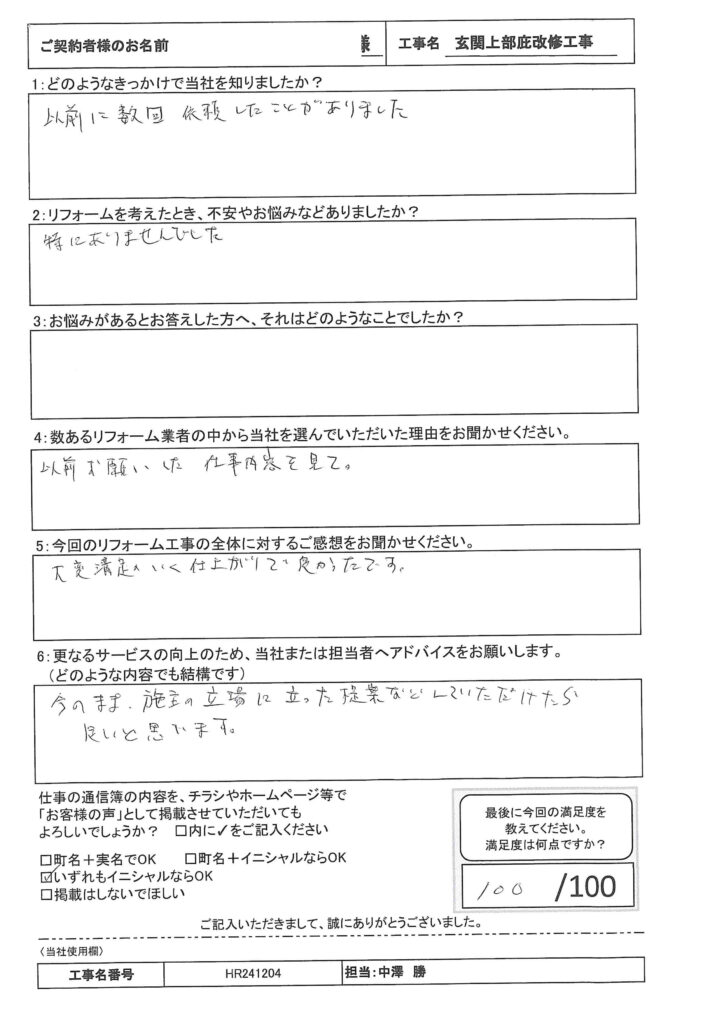 ご契約者様のお名前 様 工事名 玄関上部庇改修工事
1:どのようなきっかけで当社を知りましたか？
以前に数回 依頼したことがありました
2:リフォームを考えたとき、不安やお悩みなどありましたか？
特にありませんでした
3:お悩みがあるとお答えした方へ、それはどのようなことでしたか？
4:数あるリフォーム業者の中から当社を選んでいただいた理由をお聞かせください。
以前お願いした 仕事内容を見て。
5:今回のリフォーム工事の全体に対するご感想をお聞かせください。
大変満足のいく仕上がりで良かったです。
6:更なるサービスの向上のため、当社または担当者へアドバイスをお願いします。
（どのような内容でも結構です）
今のまま、施主の立場に立った提案などしていただけたら
良いと思います。
仕事の通信簿の内容を、チラシやホームページ等で
「お客様の声」として掲載させていただいても
よろしいでしょうか？ □内に✓をご記入ください
□町名＋実名でOK □町名＋イニシャルならOK
☑いずれもイニシャルならOK
□掲載はしないでほしい
最後に今回の満足度を
教えてください。
満足度は何点ですか？
100 /100
ご記入いただきまして、誠にありがとうございました。
（当社使用欄）
工事名番号 HR241204 担当:中澤 勝